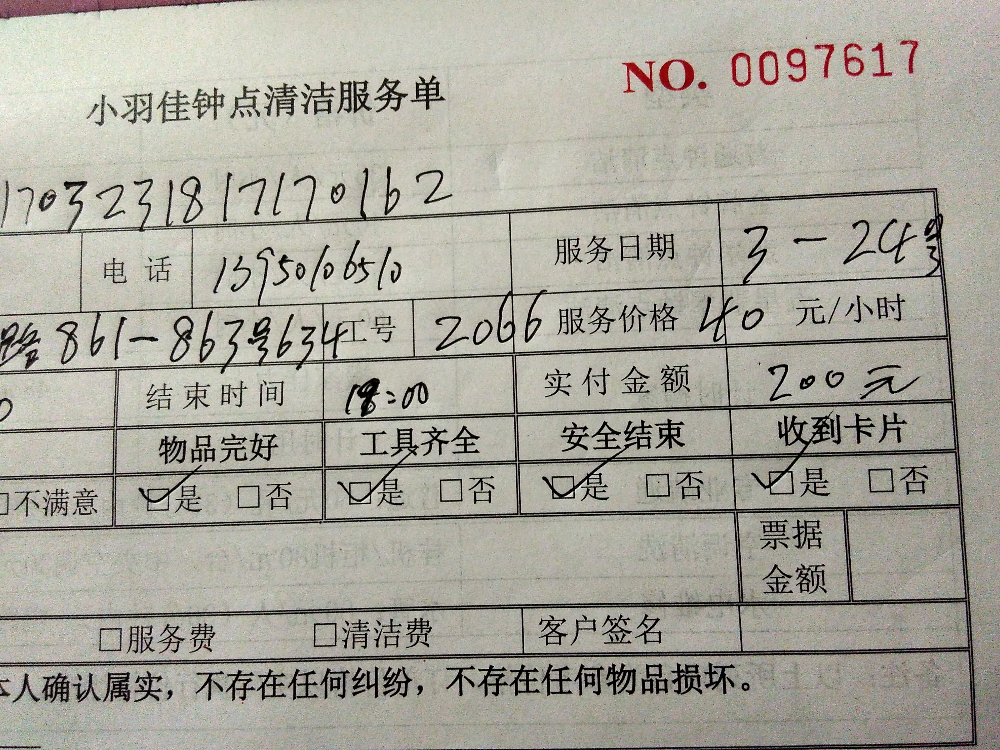 NO. 0097617
小羽佳钟点清洁服务单
170323181717 0162
电话 13950106510 服务日期 3-24号
路861-863号634 工号 2066 服务价格 40 元/小时
0 结束时间 18:00 实付金额 200元
物品完好 工具齐全 安全结束 收到卡片
□不满意 ☑是 □否 ☑是 □否 ☑是 □否 ☑是 □否
票据
金额
□服务费 □清洁费 客户签名
本人确认属实，不存在任何纠纷，不存在任何物品损坏。